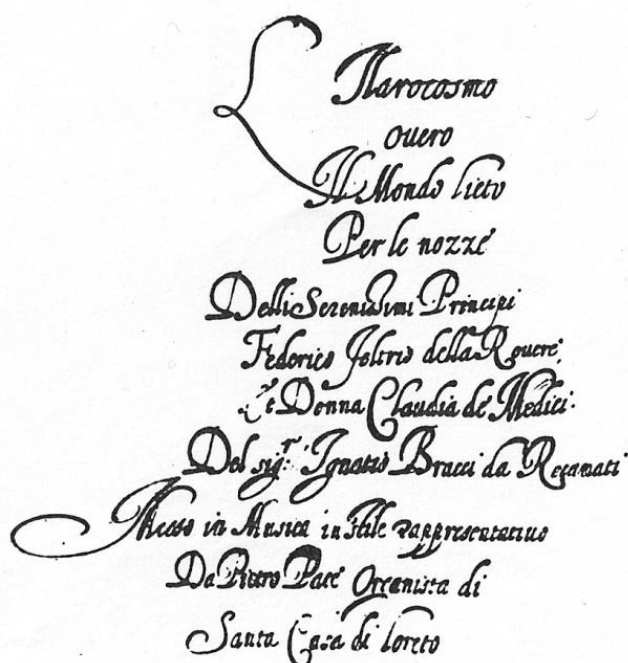 L Ilarocosmo
overo
Il Mondo lieto
Per le nozze
Delli Serenissimi Principi
Federico Feltrio della Rovere,
Et Donna Claudia de Medici.
Del sig.r Ignatio Bracci da Recanati
Messo in Musica in stile rappresentativo
Da Pietro Pace Organista di
Santa Casa di Loreto